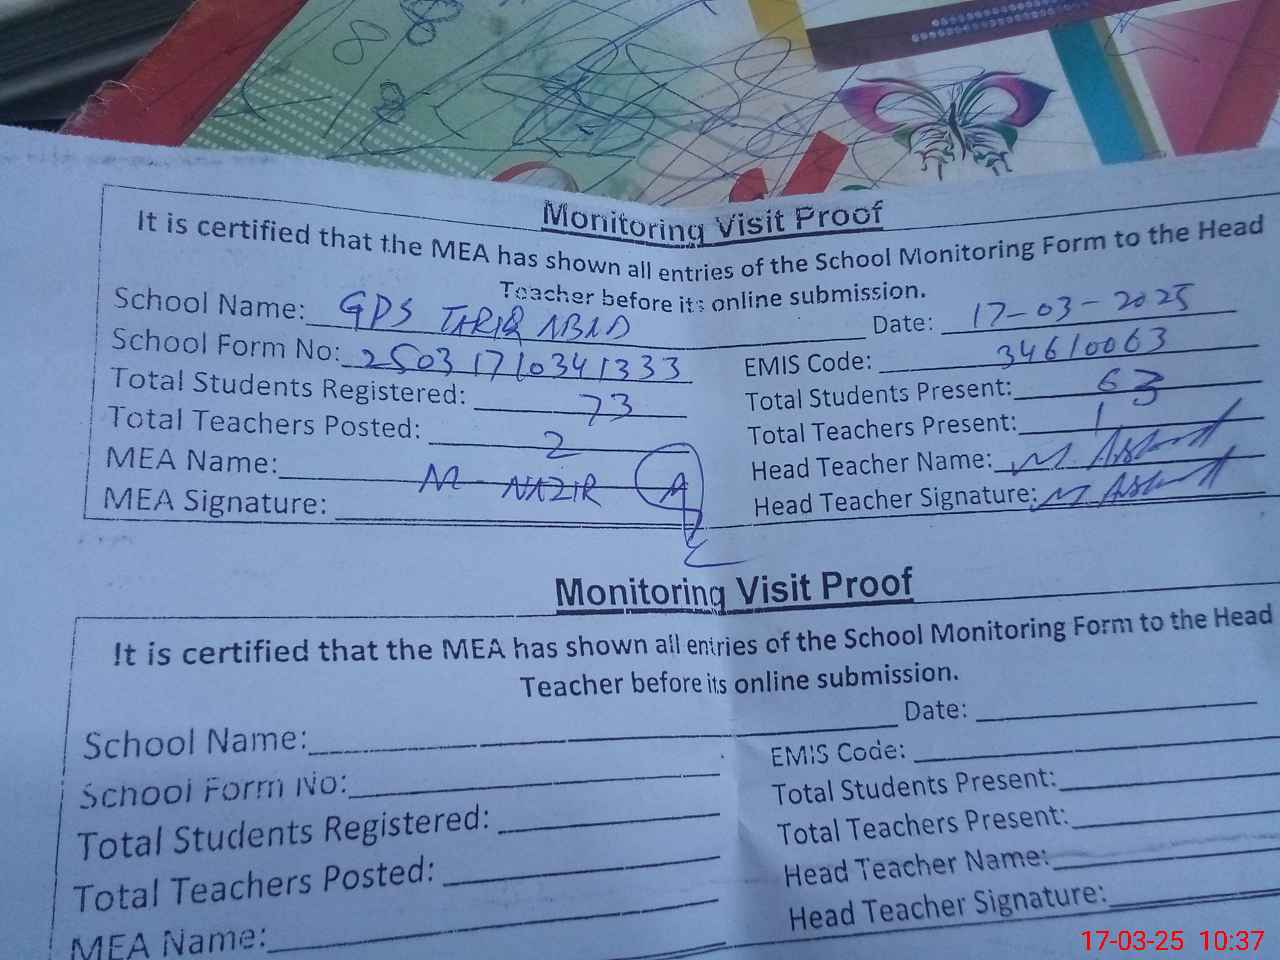 Monitoring Visit Proof
It is certified that the MEA has shown all entries of the School Monitoring Form to the Head
Teacher before its online submission.
School Name: GPS TARIQ ABAD Date: 17-03-2025
School Form No: 25031710341333 EMIS Code: 34610063
Total Students Registered: 73 Total Students Present: 63
Total Teachers Posted: 2 Total Teachers Present: 1
MEA Name: M. NAZIR Head Teacher Name: M. Arshad
MEA Signature: Head Teacher Signature: M. Arshad
Monitoring Visit Proof
It is certified that the MEA has shown all entries of the School Monitoring Form to the Head
Teacher before its online submission.
School Name: Date:
School Form No: EMIS Code:
Total Students Registered: Total Students Present:
Total Teachers Posted: Total Teachers Present:
MEA Name: Head Teacher Name:
Head Teacher Signature:
17-03-25 10:37